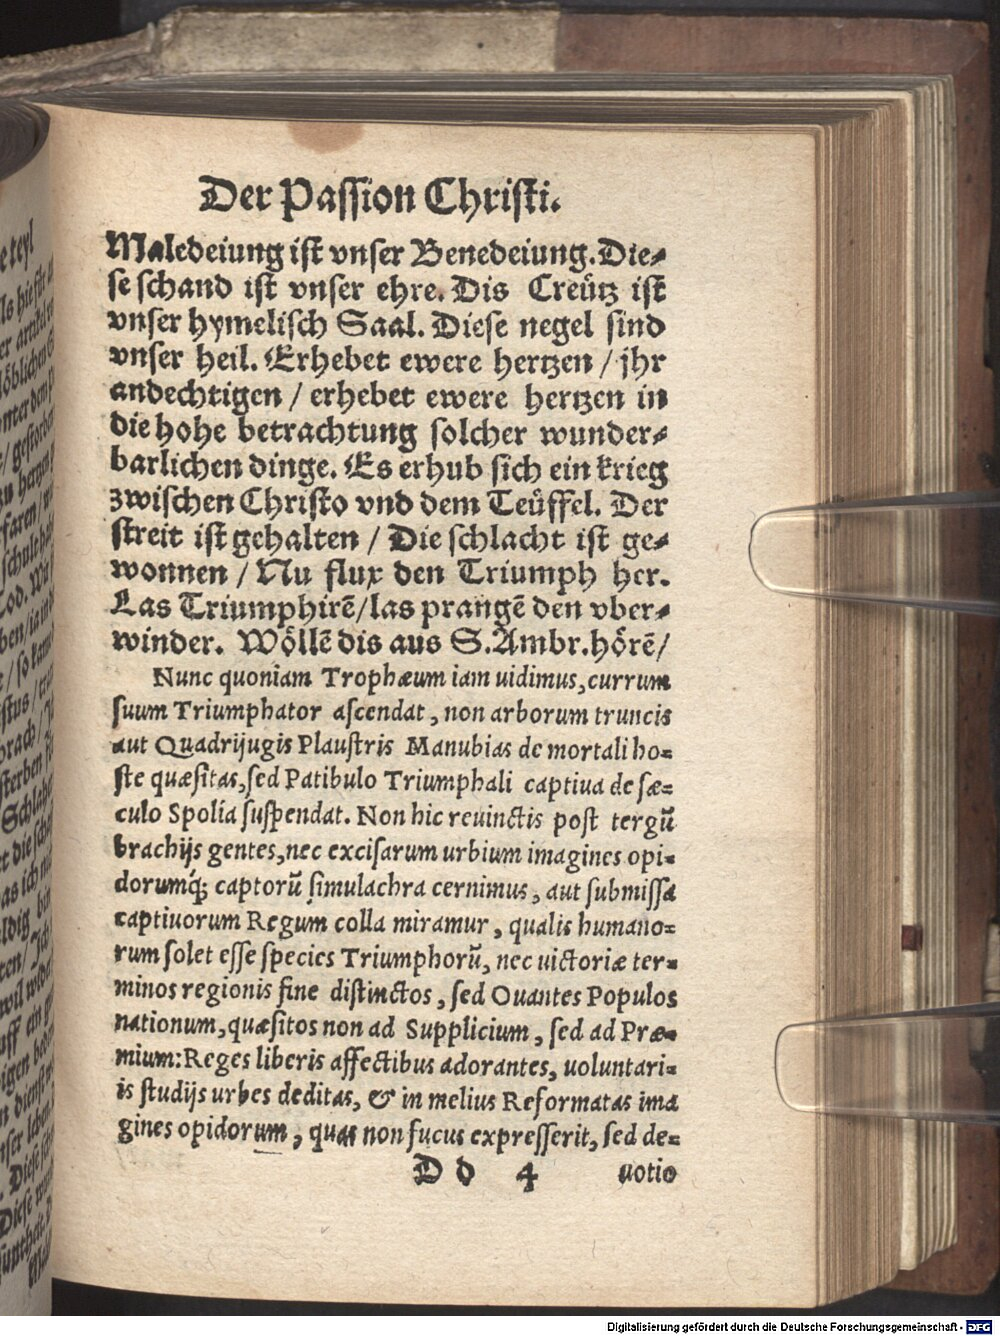 Der Passion Christi.
Maledeiung ist vnser Benedeiung. Die⸗
se schand ist vnser ehre. Dis Creütz ist
vnser hymelisch Saal. Diese negel sind
vnser heil. Erhebet ewere hertzen / jhr
andechtigen / erhebet ewere hertzen in
die hohe betrachtung solcher wunder⸗
barlichen dinge. Es erhub sich ein krieg
zwischen Christo vnd dem Teüffel. Der
streit ist gehalten / Die schlacht ist ge⸗
wonnen / Nu flux den Triumph her.
Las Triumphirē/las prangē den vber⸗
winder. Wöllē dis aus S. Ambr. hörē/
Nunc quoniam Trophæum iam uidimus, currum
suum Triumphator ascendat, non arborum truncis
aut Quadrijugis Plaustris Manubias de mortali ho⸗
ste quæsitas, sed Patibulo Triumphali captiua de sæ⸗
culo Spolia suspendat. Non hic reuinctis post tergū
brachijs gentes, nec excisarum urbium imagines opi⸗
dorumq́; captorū simulachra cernimus, aut submissa
captiuorum Regum colla miramur, qualis humano⸗
rum solet esse species Triumphorū, nec uictoriæ ter⸗
minos regionis fine distinctos, sed Ouantes Populos
nationum, quæsitos non ad Supplicium, sed ad Præ⸗
mium: Reges liberis affectibus adorantes, uoluntari⸗
is studijs urbes deditas, & in melius Reformatas ima
gines opidorum, quas non fucus expresserit, sed de⸗
D d 4 uotio
Digitalisierung gefördert durch die Deutsche Forschungsgemeinschaft - DFG